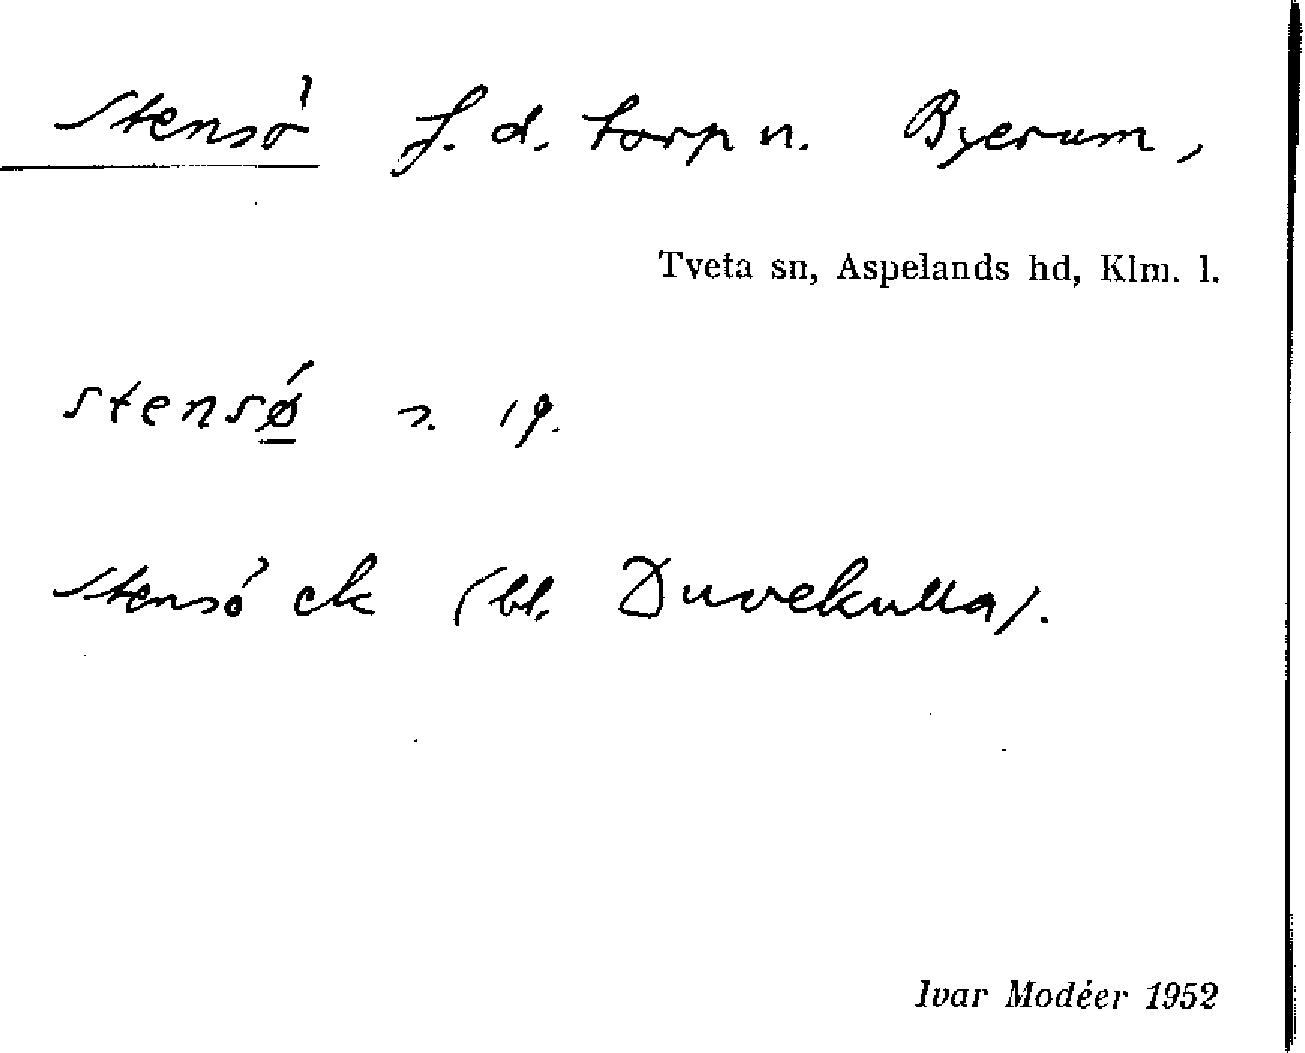 Stensö f. d. torp u. Byerum,
Tveta sn, Aspelands hd, Klm. l.
stensǿ 19.
Stensö ek (bl. Duvekulla).
Ivar Modéer 1952